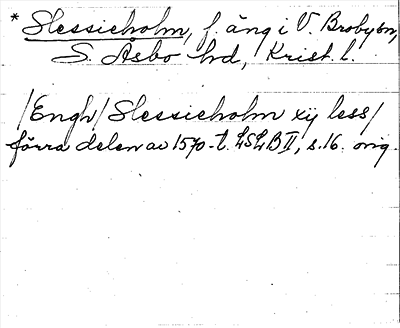 * Slessieholm, f. äng i V. Broby sn,
S. Åsbo hd, Krist. l.
/Engh/ Slessieholm xij less/
förra delen av 1570-t. LSLB II, s. 16. orig.